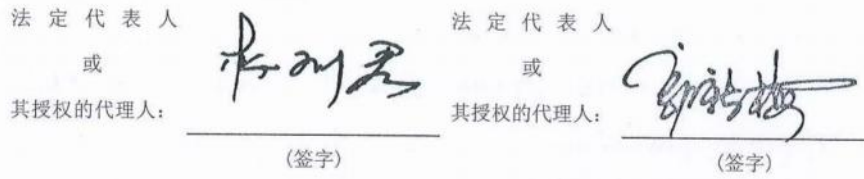 法定代表人
或
其授权的代理人：
(签字)
法定代表人
或
其授权的代理人：
(签字)